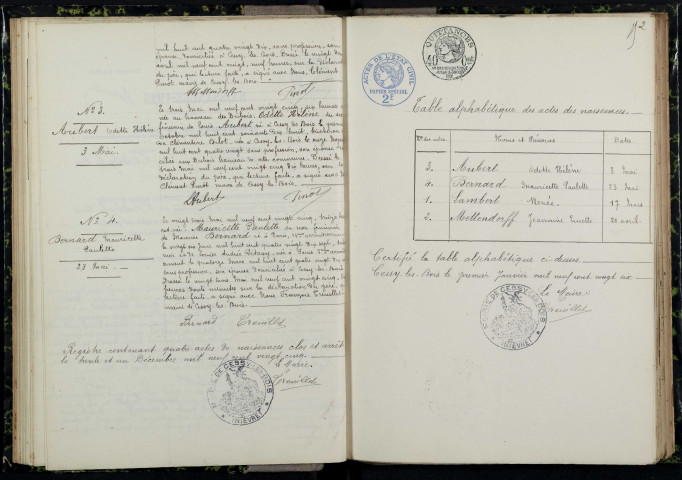 mil huit cent quatre vingt dix, sans profession, son
épouse domiciliés à Cessy les Bois. Dressé le vingt
avril mil neuf cent vingt, neuf heures, sur la déclaration
du père, qui lecture faite, a signé avec Nous, Clément
Pinot maire de Cessy les Bois.
Mellendorff Pinot
N° 3.
Aubert Odette Hélène
3 Mai
Le trois Mai mil neuf cent vingt cinq, dix heures
née au hameau des Dubois, Odette Hélène, du sexe
féminin de Louis Aubert né à Cessy les Bois le quinze
octobre mil huit cent soixante dix huit, bûcheron
Clémentine née à Cessy les Bois le onze
mil huit cent quatre vingt sans profession, son épouse
Dubois hameau de cette commune. Dressé le
trois Mai mil neuf cent vingt cinq dix heures, sur la
déclaration du père, qui lecture faite, a signé avec Nous
Clément Pinot maire de Cessy les Bois.
Aubert Pinot
N° 4.
Bernard Mauricette
Paulette
23 Mai
Le vingt trois Mai mil neuf cent vingt cinq,
est née Mauricette Paulette du sexe féminin
de Maurice Bernard né à Paris,
le vingt six Juin mil huit cent quatre vingt dix sept,
née à Paris
le quatorze Mars mil huit cent quatre vingt
sans profession, son épouse domiciliés à Cessy les Bois
Dressé le vingt Mai mil neuf cent vingt cinq,
heures trente minutes sur la déclaration du père, qui
lecture faite, a signé avec Nous François Treuillet
maire de Cessy les Bois.
Bernard Treuillet
Registre contenant quatre actes de naissances clos et arrêté
le trente et un Décembre mil neuf cent vingt cinq.
Le Maire
Treuillet
MAIRIE DE CESSY-LES-BOIS
(NIÈVRE)
ACTES DE L'ÉTAT CIVIL
PAPIER SPÉCIAL
2F
QUITTANCES
Table alphabétique des actes des naissances
N° des actes Noms et Prénoms Dates
3. Aubert Odette Hélène 3 Mai
4. Bernard Mauricette Paulette 23 Mai
1. Lambert 17 Mars
2. Mellendorff Jeannine 20 avril
Certifié la table alphabétique ci-dessus
Cessy les Bois le premier Janvier mil neuf cent vingt six
Le Maire
Treuillet
MAIRIE DE CESSY-LES-BOIS
(NIÈVRE)